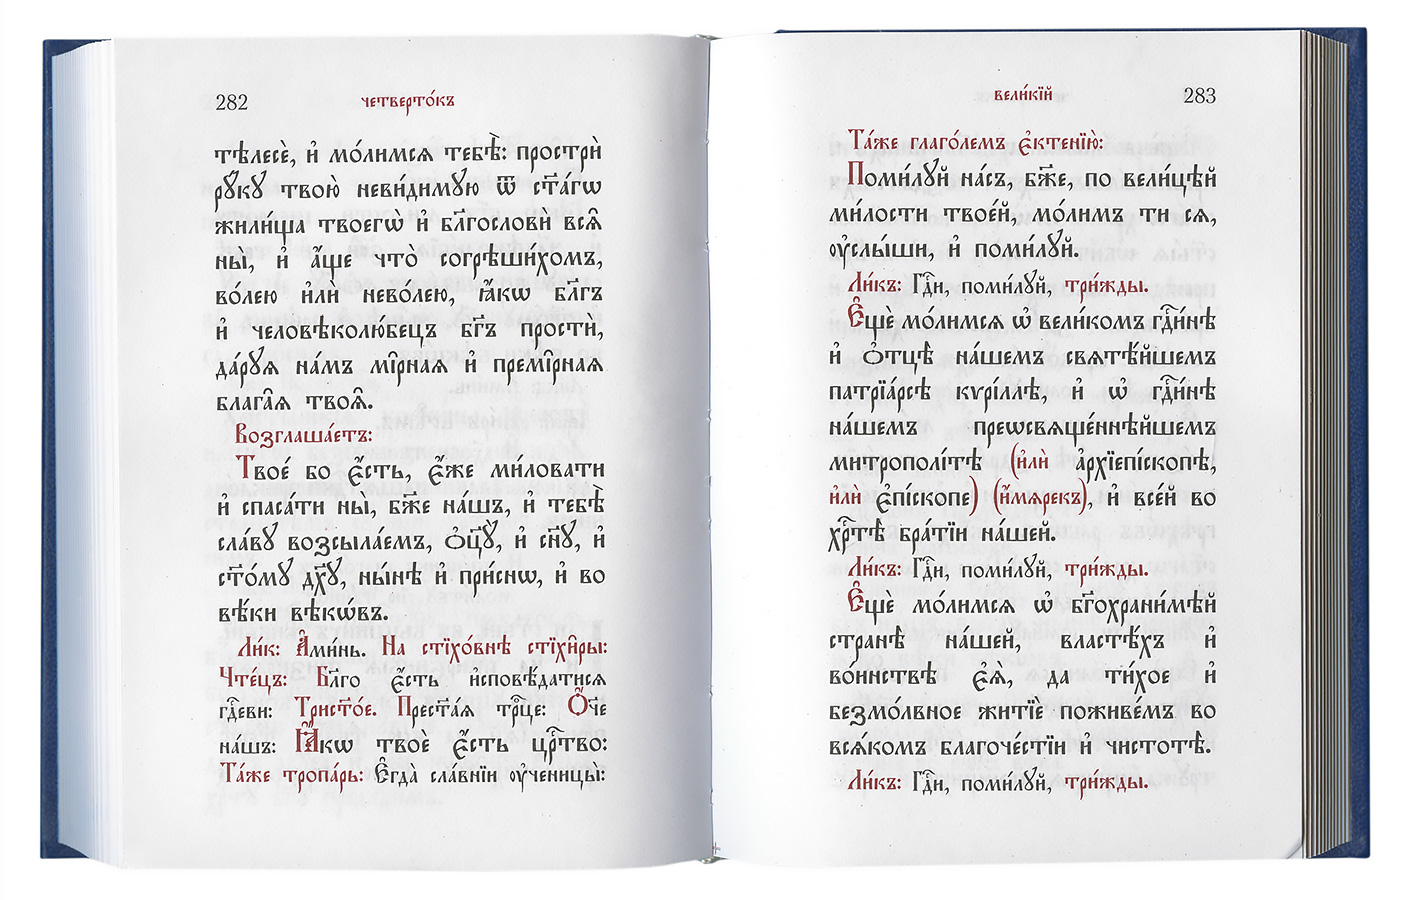 282
четверто́къ
тѣлесѐ, и҆ мо́лимсѧ тебѣ̀: прострѝ
рꙋ́кꙋ твою̀ неви́димꙋю ѿ ст҃а́гѡ
жили́ща твоегѡ̀ и҆ бл҃гословѝ всѧ̑
ны̀, и҆ а҆́ще что̀ согрѣши́хомъ,
во́лею и҆лѝ нево́лею, ꙗ҆́кѡ бл҃гъ
и҆ человѣколю́бецъ бг҃ъ прости,
да́рꙋѧ на́мъ ми̑рнаѧ и҆ преми̑рнаѧ
блага̑ѧ твоѧ̑.
Возглаша́етъ:
Твое́ бо є҆́сть, є҆́же ми́ловати
и҆ спаса́ти ны̀, бж҃е на́шъ, и҆ тебѣ̀
сла́вꙋ возсыла́емъ, ѻ҆ц҃ꙋ̀, и҆ сн҃ꙋ, и҆
ст҃о́мꙋ дх҃ꙋ, ны́нѣ и҆ при́снѡ, и҆ во
вѣ́ки вѣкѡ́въ.
Ли́к: А҆ми́нь. На стїхо́внѣ стїхи̑ры:
Чте́цъ: Бл҃го є҆́сть и҆сповѣ́датисѧ
гдⷭ҇еви: Трист҃о́е. Прест҃а́ѧ трⷪ҇це: Ѻ҆́ч҃е
на́шъ: Ꙗ҆́кѡ твоѐ є҆́сть црⷭ҇тво:
Та́же тропа́рь: Є҆гда̀ сла́внїи оу҆ченицы̀:
вели́кїй
283
Та́же глаго́лемъ є҆ктенїю̀:
Поми́лꙋй на́съ, бж҃е, по вели́цѣй
ми́лости твое́й, мо́лимъ ти сѧ,
оу҆слы́ши, и҆ поми́лꙋй.
Ли́къ: Гдⷭ҇и, поми́лꙋй, три́жды.
Є҆щѐ мо́лимсѧ ѡ҆ вели́комъ гдⷭ҇и́нѣ
и҆ ѻ҆тцѣ̀ на́шемъ свѧтѣ́йшемъ
патрїа́рсѣ кѷрі́ллѣ, и҆ ѡ҆ гдⷭ҇и́нѣ
на́шемъ преѡсвѧще́ннѣйшемъ
митрополі́тѣ (и҆лѝ а҆рхїепі́скопѣ,
и҆лѝ є҆пі́скопе) (и҆́мѧрекъ), и҆ все́й во
хрⷭ҇тѣ̀ бра́тїи на́шей.
Ли́къ: Гдⷭ҇и, поми́лꙋй, три́жды.
Є҆щѐ мо́лимсѧ ѡ҆ бг҃охрани́мѣй
странѣ̀ на́шей, власте́хъ и҆
во́инствѣ є҆ѧ̀, да ти́хое и҆
безмо́лвное житїѐ поживе́мъ во
всѧ́комъ благоче́стїи и҆ чистотѣ̀.
Ли́къ: Гдⷭ҇и, поми́лꙋй, три́жды.